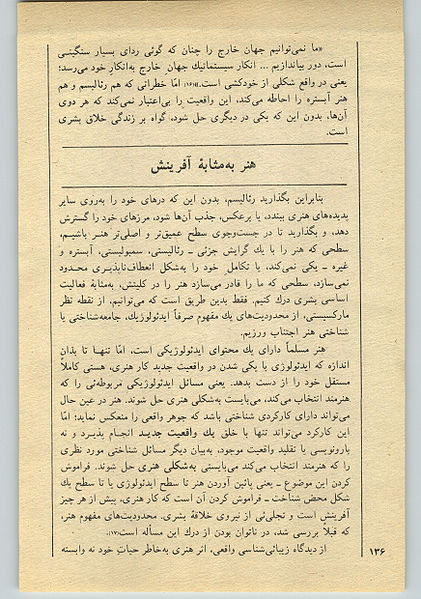 «ما نمی‌توانیم جهان خارج را چنان که گوئی ردای بسیار سنگینی
است، دور بیاندازیم ... انکار سیستماتیك جهان خارج به‌انکار خود می‌رسد؛
یعنی در واقع شکلی از خودکشی است.»(۱۶) امّا خطراتی که هم رئالیسم و هم
هنر آبستره را احاطه می‌کند، این واقعیت را بی‌اعتبار نمی‌کند که هر دوی
آن‌ها، بدون این که یکی در دیگری حل شود، گواه بر زندگی خلاق بشری
است.
هنر به‌مثابهٔ آفرینش
بنابراین بگذارید رئالیسم، بدون این که درهای خود را به‌روی سایر
پدیده‌های هنری ببندد، یا برعکس، جذب آن‌ها شود، مرزهای خود را گسترش
دهد، و بگذارید تا در جست‌وجوی سطح عمیق‌تر و اصلی‌تر هنر باشیم،
سطحی که هنر را با یك گرایش جزئی ـ رئالیستی، سمبولیستی، آبستره و
غیره ـ یکی نمی‌کند، یا تکامل خود را به‌شکل انعطاف‌ناپذیری محدود
نمی‌سازد، سطحی که ما را قادر می‌سازد هنر را در کلیتش، به‌مثابهٔ فعالیت
اساسی بشری درك کنیم. فقط بدین طریق است که می‌توانیم، از نقطه نظر
مارکسیستی، از محدودیت‌های یك مفهوم صرفاً ایدئولوژیك، جامعه‌شناختی یا
شناختی هنر اجتناب ورزیم.
هنر مسلماً دارای یك محتوای ایدئولوژیکی است، امّا تنها تا بدان
اندازه که ایدئولوژی با یکی شدن در واقعیت جدید کار هنری، هستی کاملاً
مستقل خود را از دست بدهد. یعنی مسائل ایدئولوژیکی مربوطه‌ئی را که
هنرمند انتخاب می‌کند، می‌بایست به‌شکلی هنری حل شوند. هنر در عین حال
می‌تواند دارای کارکردی شناختی باشد که جوهر واقعی را منعکس نماید؛ امّا
این کارکرد می‌تواند تنها با خلق یك واقعیت جدید انجام پذیرد و نه
بارونویسی یا تقلید واقعیت موجود، به‌بیان دیگر مسائل شناختی مورد نظری
را که هنرمند انتخاب می‌کند می‌بایستی به‌شکلی هنری حل شوند. فراموش
کردن این موضوع ـ یعنی پائین آوردن هنر تا سطح ایدئولوژی یا تا سطح یك
شکل محض شناخت ـ فراموش کردن آن است که کار هنری، پیش از هر چیز
آفرینش است و تجلی‌ئی از نیروی خلاقهٔ بشری. محدودیت‌های مفهوم هنر،
که قبلاً بررسی شد، در ناتوان بودن از درك این مسأله است.(۱۷)
از دیدگاه زیبائی‌شناسی واقعی، اثر هنری به‌خاطر حیات خود نه وابسته
۱۳۶